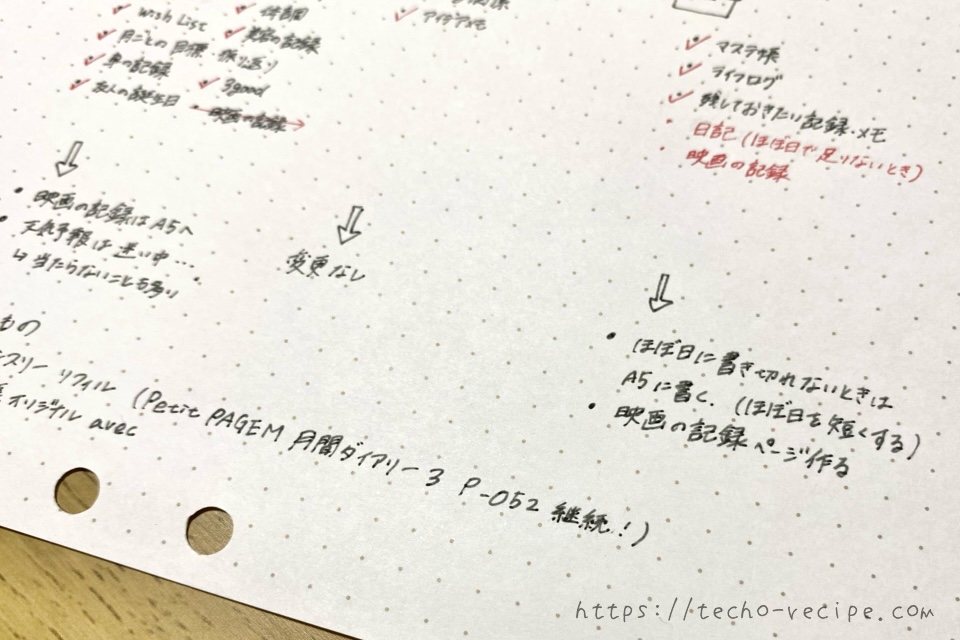 wish List
体調
月ごとの目標・振り返り
車の記録
3good
友人の誕生日
映画の記録
アイデアメモ
マステ帳
ライフログ
残しておきたい記録・メモ
日記(ほぼ日で足りないとき)
映画の記録
映画の記録はA5へ
天気予報は迷い中…
↳当たらないことも多い
変更なし
ほぼ日に書き切れないときは
A5に書く. (ほぼ日を短くする)
映画の記録ページ作る
もの
スリー リフィル (Petit PAGEM 月間ダイアリー3 P-052 継続!)
オリジナル avec
https://techo-recipe.com